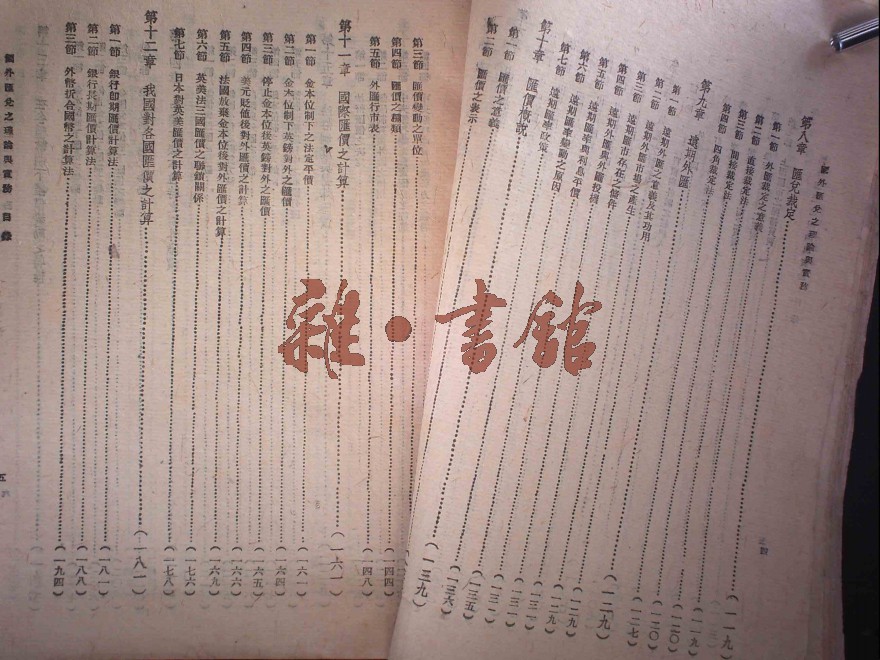 國外匯兌之理論與實務
第八章 匯兌裁定
第一節 外匯裁定之意義
第二節 直接裁定法
第三節 間接裁定法
第四節 四角裁定法
第九章 遠期外匯
第一節 遠期外匯之意義及其功用
第二節 遠期外匯市場之產生
第三節 遠期匯市存在之條件
第四節 遠期外匯與外匯投機
第五節 遠期匯率與利息平價
第六節 遠期匯率變動之原因
第七節 遠期匯率政策
第十章 匯價概說
第一節 匯價之意義
第二節 匯價之表示
第三節 匯價變動之單位
第四節 匯價之種類 (一四四)
第五節 外匯行市表 (一四八)
第十一章 國際匯價之計算 (一六一)
第一節 金本位制下之法定平價 (一六一)
第二節 金本位制下英鎊對外之匯價 (一六四)
第三節 停止金本位後英鎊對外之匯價 (一六五)
第四節 美元貶值後對外匯價之計算 (一六六)
第五節 法國放棄金本位後對外匯價之計算 (一六九)
第六節 英美法三國匯價之聯鎖關係 (一七六)
第七節 日本對英美匯價之計算 (一七八)
第十二章 我國對各國匯價之計算 (一八一)
第一節 銀行卽期匯價計算法 (一八一)
第二節 銀行長期匯價計算法 (一八八)
第三節 外幣折合國幣之計算法 (一九四)
國外匯兌之理論與實務 目錄
五
雜·書館